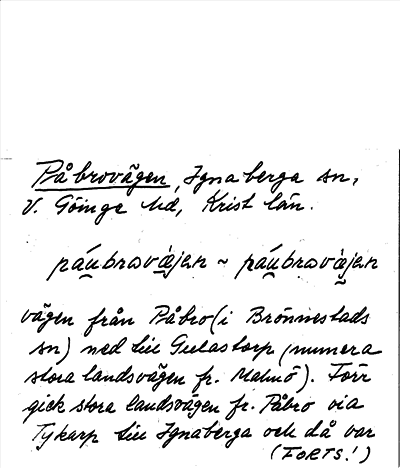 Påbrovägen, Ignaberga sn,
V. Göinge hd, Krist län.
páu̯brɷvæ̀jən ~ páu̯brɷvæ̀jən
vägen från Påbro (i Brönnestads
sn) ned till Gulastorp (numera
stora landsvägen fr. Malmö). Förr
gick stora landsvägen fr. Påbro via
Tykarp till Ignaberga och då var
(FORTS.!)